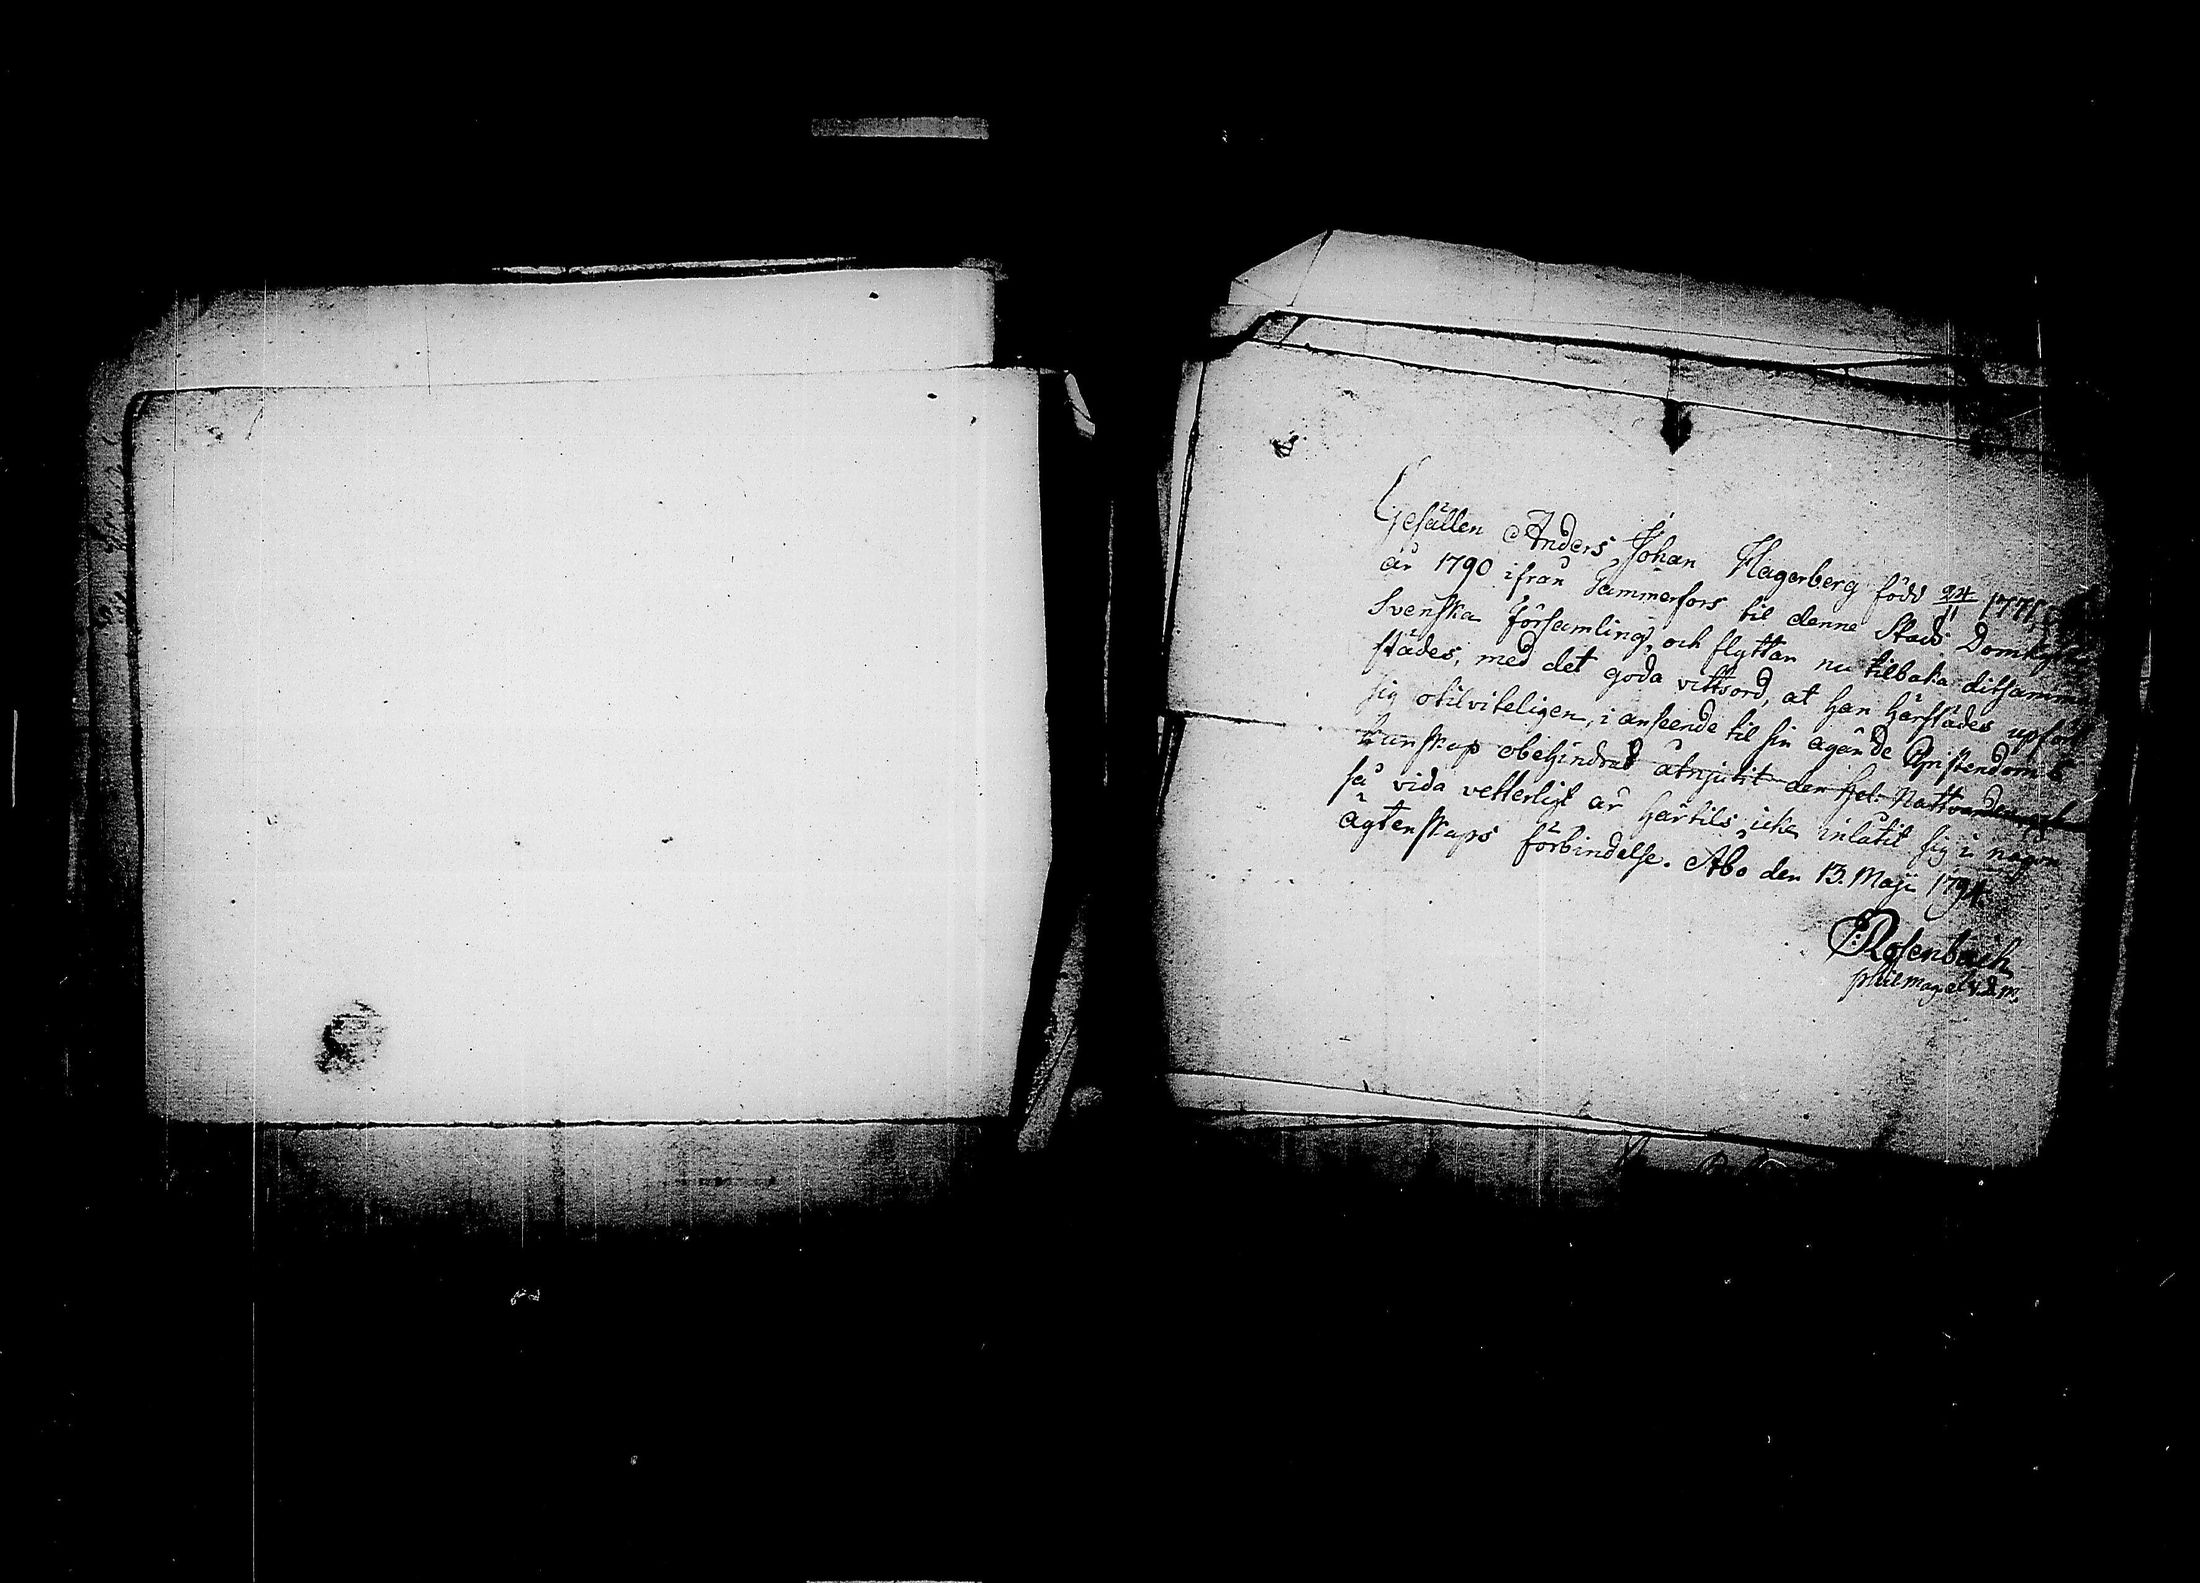 Gesällen Anders Johan Hagerberg född 24/11 1771,
år 1790 ifrån Tammerfors til denne Stads Domkyrko
Svenska Församling, och flyttar nu tilbaka ditsamma
städes, med det goda vittsord, at han härstädes upfört
sig otilviteligen, i anseende til sin ägande Christendoms
kunskap obehindrat åtnjutit den Hel: Nattvarden
så vida vetterligt är härtils icke inlåtit sig i någon
ägtenskaps förbindelse. Åbo den 13. Maji 1794.
E: Rosenbach
phil mag. et v.d.m.